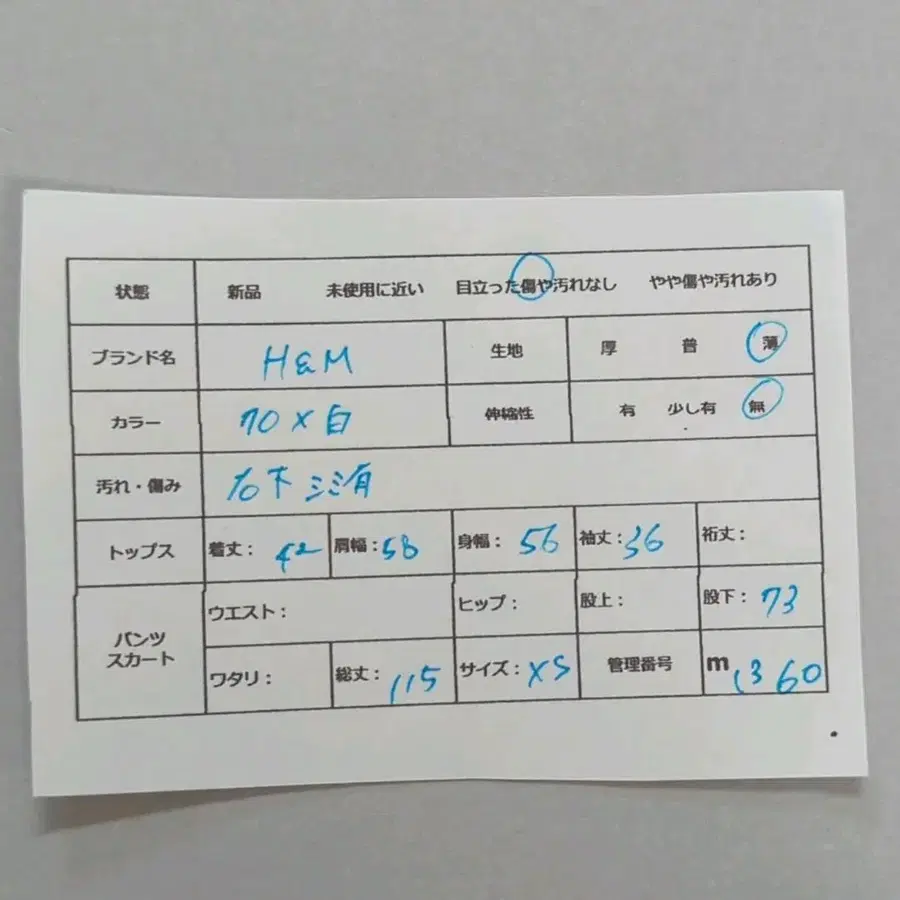 状態 新品 未使用に近い 目立った傷や汚れなし やや傷や汚れあり
ブランド名 H&M 生地 厚 普 薄
カラー 白 伸縮性 有 少し有 無
汚れ・傷み 右下シミ有
トップス 着丈: 42 肩幅:58 身幅: 56 袖丈:36 裄丈:
パンツ スカート ウエスト: ヒップ: 股上: 股下: 73
ワタリ: 総丈: 115 サイズ: XS 管理番号 m 1360